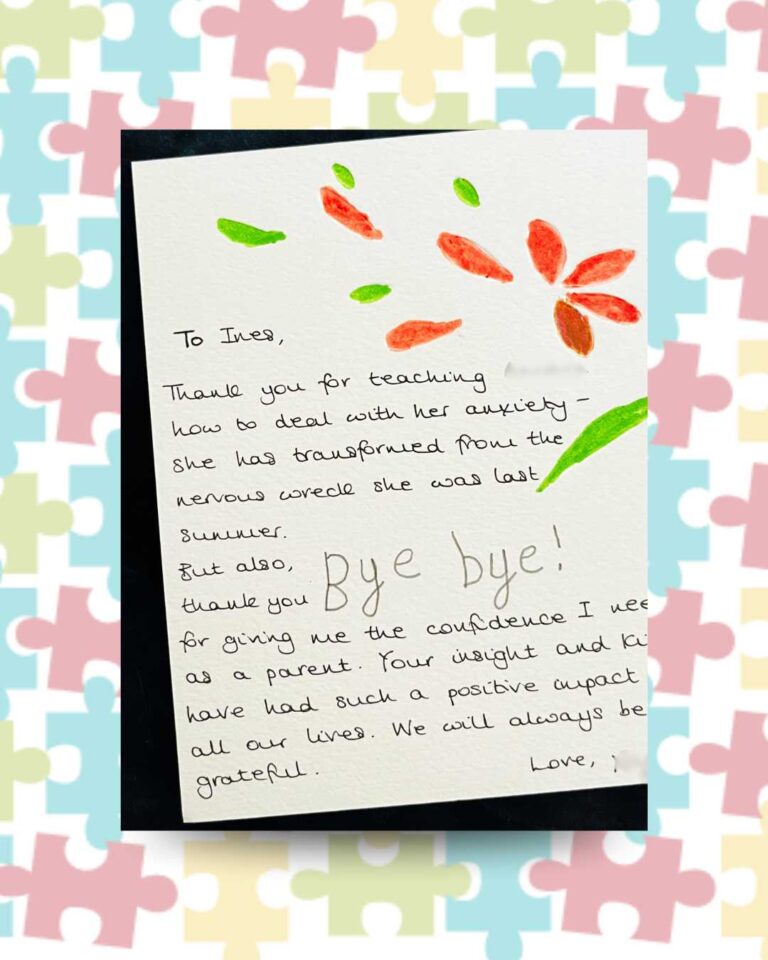 To Ines,
Thank you for teaching
how to deal with her anxiety -
she has transformed from the
nervous wreck she was last
summer.
But also,
thank you
Bye bye!
for giving me the confidence I
as a parent. Your insight and
have had such a positive impact
all our lives. We will always be
grateful.
Love,